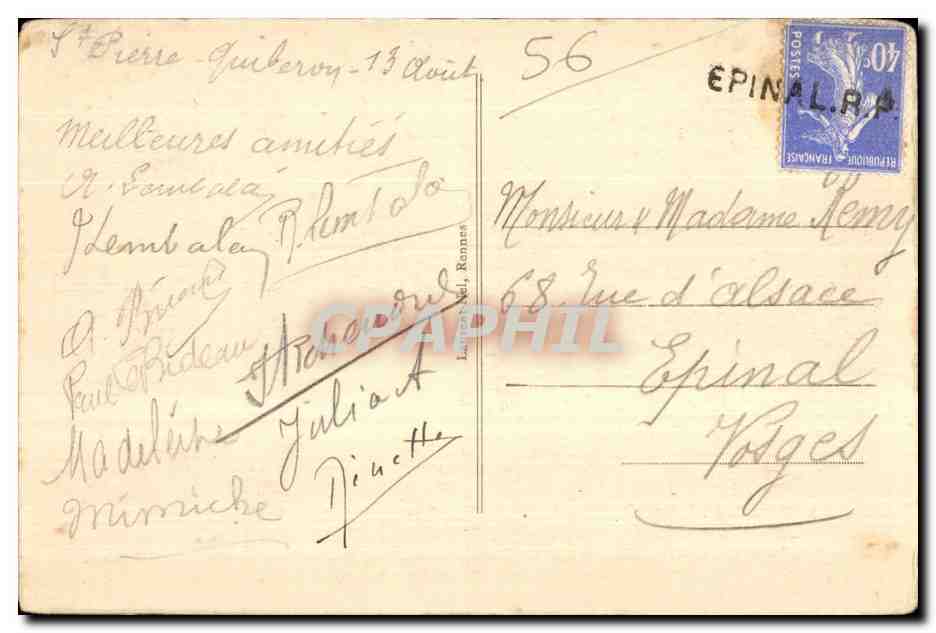 St Pierre Quiberon - 13 Août
56
Meilleures amitiés
Paul Bideau
Madeleine
Juliat
Ninette
Mimiche
Laurent-Nel, Rennes
CPAPHIL
EPINAL.R.P.
40c
POSTES
REPUBLIQUE FRANÇAISE
Monsieur & Madame Remy
68 Rue d'alsace
Epinal
Vosges